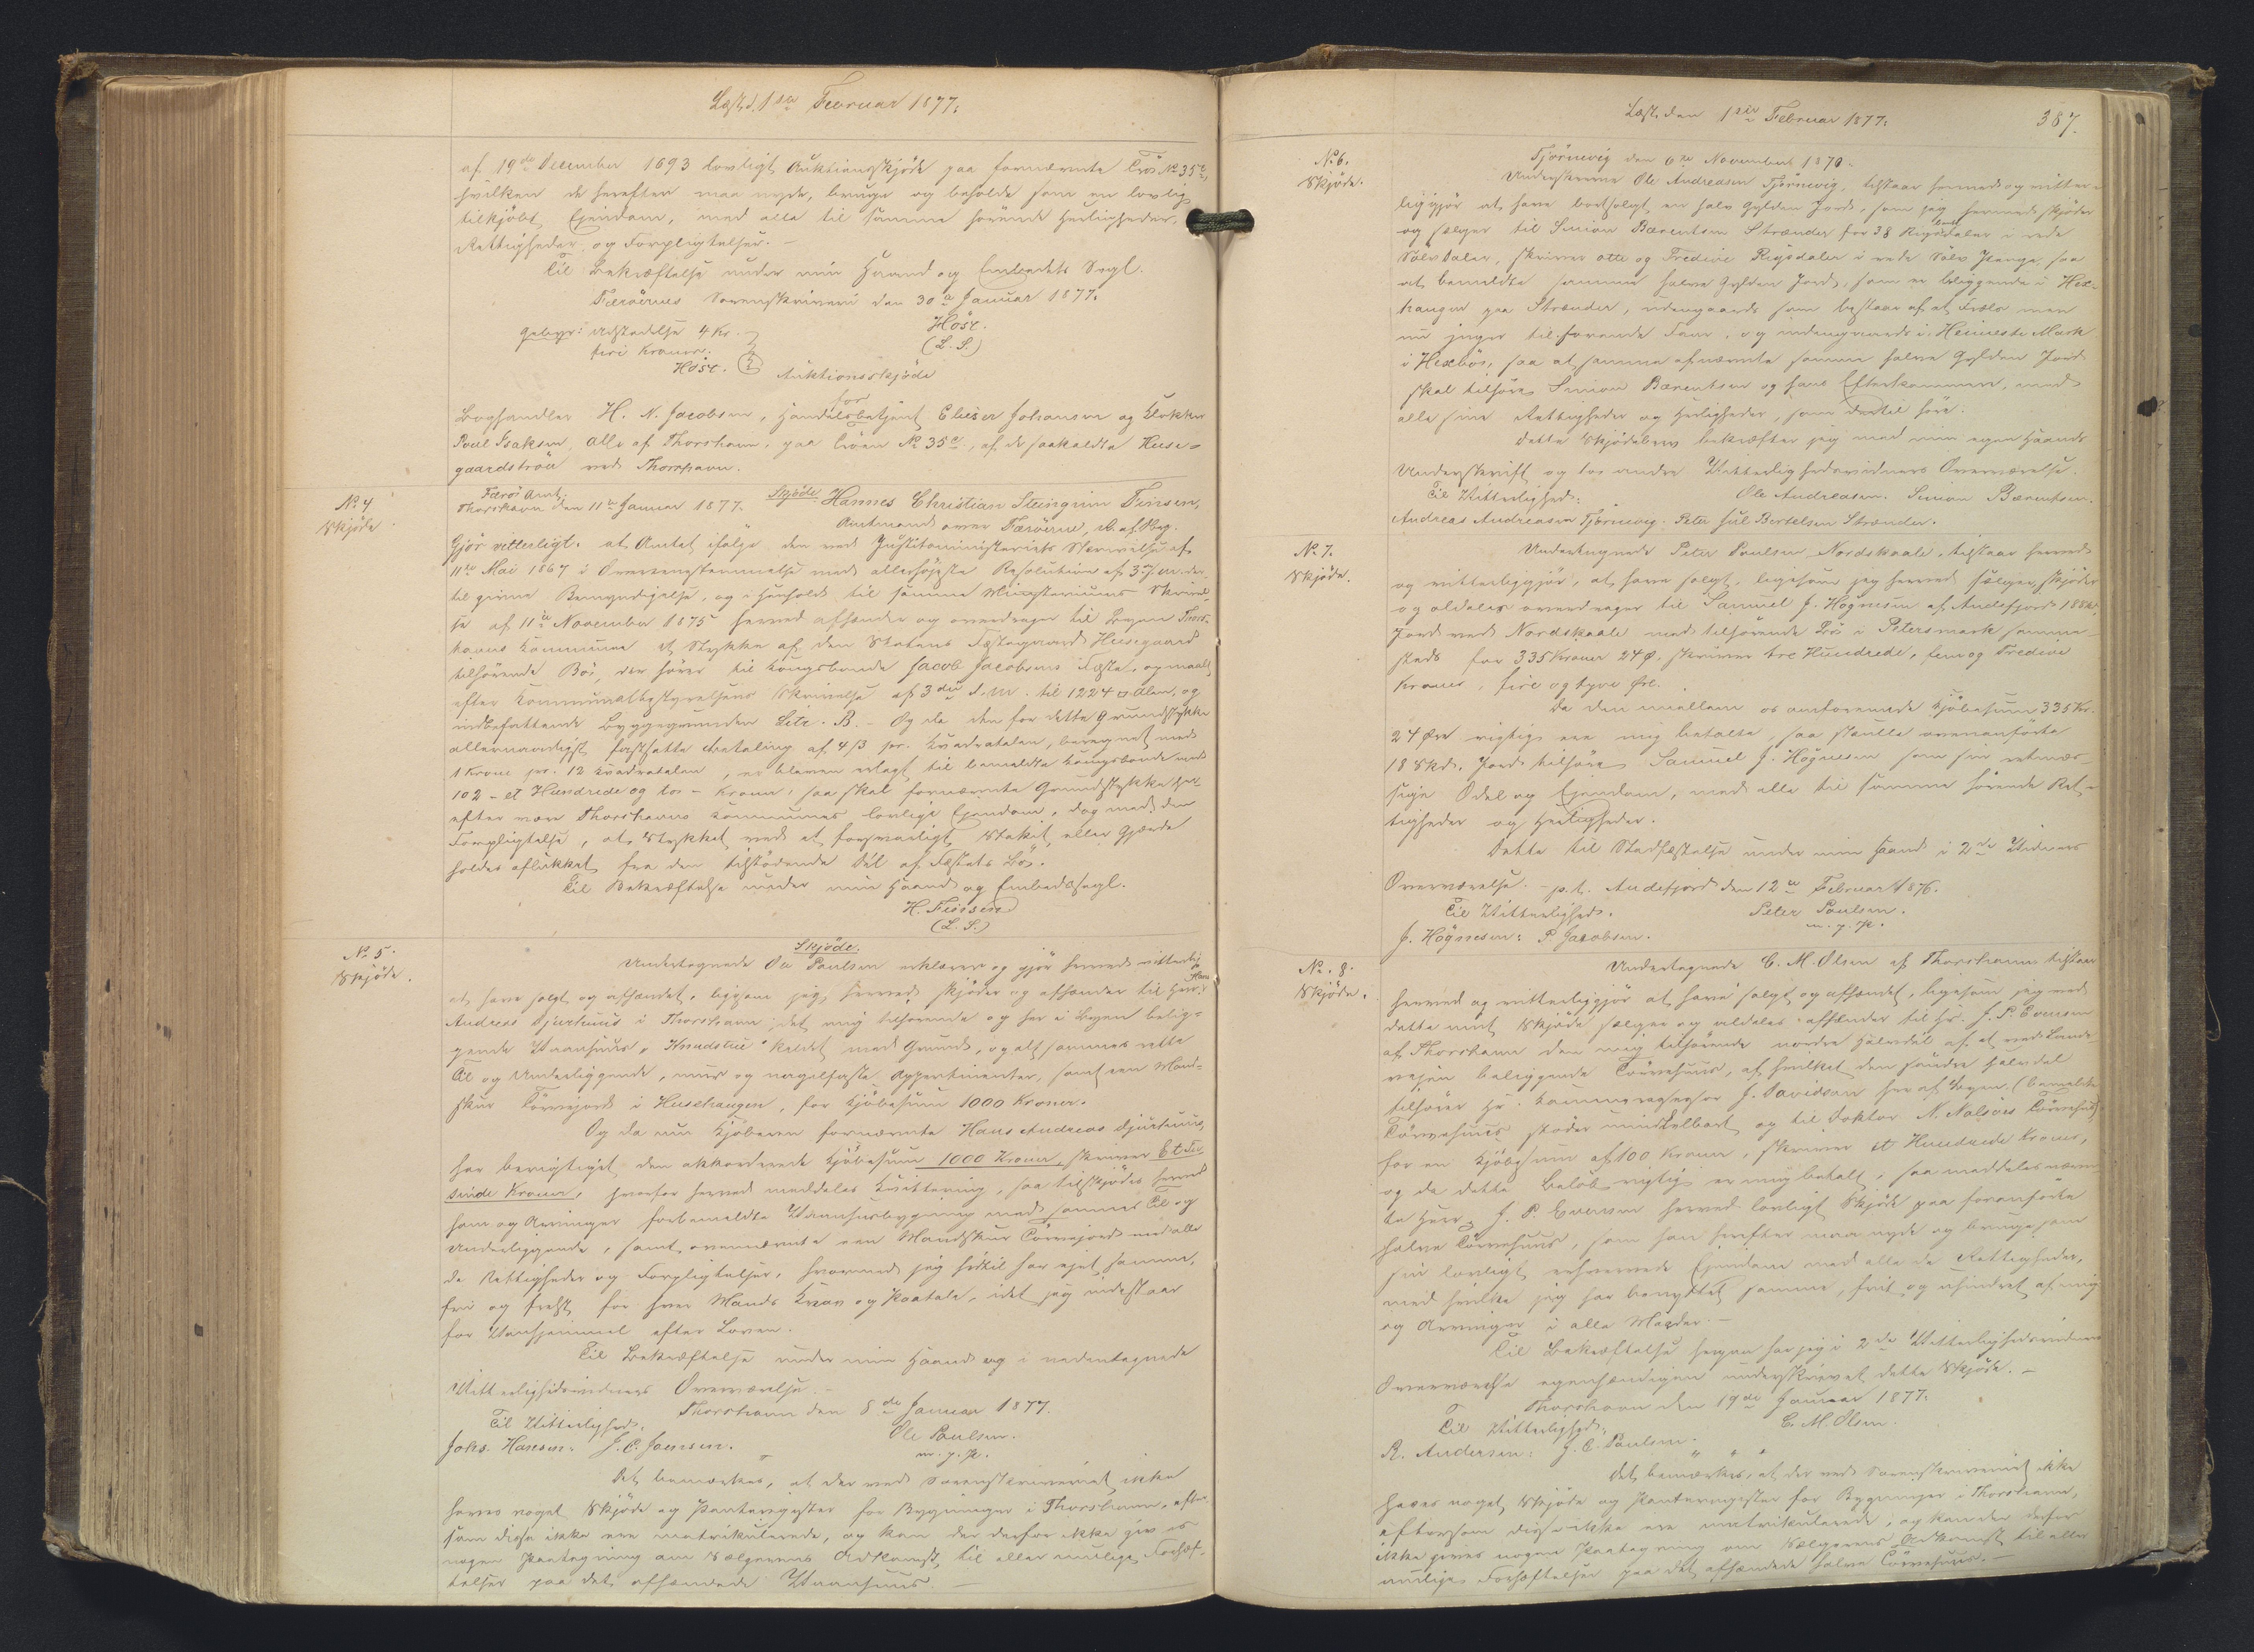 Læst d. 1ste Februar 1877.
af 19de December 1693 lovligt Auktionsskjøde paa fornævnte Trö No 35c,
hvilken de herefter maa nyde, bruge og beholde som en lovlig
tilkjöbt Ejendom, med alle til samme hörende Herligheder,
Rettigheder og Forpligtelser. –
Til Bekræftelse under min Haand og Embedets Segl.
Færöernes Sorenskriveri den 30te Januar 1877.
Gebyr: Udstedelse 4 Kr.
fire Kroner.
Höst.
Höst.
(L. S.)
Auktionsskjöde
for
Boghandler H. N. Jacobsen, Handelsbetjent Elieser Johansen og Klokker
Poul Isaksen, alle af Thorshavn, paa Tröen No 35c, af de saakaldte Huse-
gaardströer ved Thorshavn.
No 4
Skjöde
Færö Amt,
Thorshavn den 11te Januar 1877.
Skjöde
Hannes Christian Steingrim Finsen,
Amtmand over Færöerne, R. af Dbg.
Gjör vitterligt: at Amtet ifölge den ved Justitsministeriets Skrivelse af
11te Mai 1867 i Overeensstemmelse med allerhöjeste Resolution af 3die s. M. der-
til givne Bemyndigelse, og i Henhold til samme Ministeriums Skrivel-
se af 11te November 1875 herved afhænder og overdrager til Byen Thors-
havns Kommune et Stykke af den Statens Fæstegaard Husegaard
tilhörende Bö, der hörer til Kongsbonde Jacob Jacobsens Fæste, opmaalt
efter Kommunalbestyrelsens Skrivelse af 3die d. M. til 1224 □ Alen, og
indbefattende Byggegrunden Litr. B. – Og da den for dette Grundstykke
allernaadigst fastsatte Betaling af 4 ß pr. Kvadratalen, beregnet med
1 Krone pr. 12 Kvadratalen, er bleven erlagt til bemeldte Kongsbonde med
102 – et Hundrede og to – Kroner, saa skal fornævnte Grundstykke her-
efter være Thorshavns Kommunes lovlige Ejendom, dog med den
Forpligtelse, at Stykket ved et forsvarligt Stakit eller Gjærde
holdes aflukket fra den tilstödende Del af Fæstets Bö.
Til Bekræftelse under min Haand og Embedssegl.
H. Finsen
(L. S.)
No 5.
Skjöde.
Skjöde.
Undertegnede Ole Paulsen erklærer og gjör herved vitterlig
at have solgt og afhændet, ligesom jeg herved skjöder og afhænder til Herr
Hans
Andreas Djurhuus i Thorshavn, det mig tilhörende og her i Byen belig-
gende Vaanhuus, "Knudstue" kaldet med Grund, og alt sammes rette
Til og Underliggende, muur og nagelfaste Appertinentier, samt een Mand-
skur Törvejord i Husehaugen, for Kjöbesum 1000 Kroner.
Og da nu Kjöberen fornævnte Hans Andreas Djurhuus,
har berigtiget den akkorderede Kjöbesum 1000 Kroner, skriver Et Tu-
sinde Kroner, hvorfor herved meddeles Kvittering, saa tilskjödes herved
ham og Arvinger forbemeldte Vaanhuusbygning med sammes Til og
Underliggende, samt ovennævnte een Mandskur Törvejord med alle
de Rettigheder og Forpligtelser, hvormed jeg hidtil har ejet samme,
fri og frelst for hver Mands Krav og Paatale, idet jeg indestaar
for Vanhjemmel efter Loven.
Til Bekræftelse under min Haand og i nedentegnede
Vitterlighedsvidners Overværelse. –
Thorshavn den 8de Januar 1877.
Til Vitterlighed.
Ole Paulsen.
Johs. Hansen. J. C. Joensen.
m. f. P.
Det bemærkes, at der ved Sorenskriveriet ikke
haves noget Skjöde og Panteregister for Bygninger i Thorshavn, efter-
som disse ikke ere matrikulerede, og kan der derfor ikke gives
nogen Paategning om Sælgerens Adkomst til eller mulige Forhæf-
telser paa det afhændede Vaanhuus. –
Læst den 1ste Februar 1877.
387.
No 6.
Skjöde.
Tjörnevig den 6te November 1870.
Underskrevne Ole Andreasen Tjörnevig, tilstaar hermed og vitter-
liggjör at have bortsolgt en halv Gylden Jord, som jeg hermed skjöder
og sælger til Simon Bærentsen Strænder for 38 Rigsdaler i rede
Sölvdaler, skriver otte og Tredive Rigsdaler i rede Sölv Penge, saa
at bemeldte samme halve Gylden Jord, som er beliggende i Hex-
haugen paa Strænder, udengaards som bestaar af at Fælles men
nu inger tilhörende Faar, og indengaards i Heimeste Mark
i Hexböi, saa at samme ofnævnte samme halve Gylden Jord
skal tilhöre Simon Bærentsen og hans Efterkommere, med
alle sine Rettigheder og Herligheder, som dertil höre.
Dette Skjödebrev bekræfter jeg med min egen Haands
Underskrift og tvs andre Vitterlighedsvidners Overværelse.
Til Vitterlighed:
Ole Andreasen. Simon Bærentsen.
Andreas Andreasen Tjörnevig. Peter Jul Bertelsen Strænder.
No 7.
Skjöde.
Undertegnede Peter Poulsen Nordskaale, tilstaar herved
og vitterliggjör, at have solgt, ligesom jeg herved sælger, skjöder
og aldeles overdrager til Samuel J. Högnesen af Andefjord 18 Skd.
Jord ved Nordskaale med tilhörende Trö i Petersmark samme-
steds for 335 Kroner 24 Ø. skriver tre Hundrede, fem og Tredive
Kroner, fire og tyve Öre.
Da den imellem os omforenede Kjöbesum 335 Kr.
24 Öre rigtig ere mig betalte, saa skulle ovenanförte
18 Skd. Jord tilhöre Samuel J. Högnesen som sin retmæs-
sige Odel og Ejendom, med alle til samme hörende Ret-
tigheder og Herligheder.
Dette til Stadfæstelse under min Haand i 2de Vidners
Overværelse. – p. t. Andefjord den 12te Februar 1876.
Til Vitterlighed.
Peter Poulsen.
m. f. P.
J. Högnesen: P. Jacobsen.
No. 8.
Skjöde.
Undertegnede C. M. Olsen af Thorshavn tilstaar
herved og vitterliggjör at have solgt og afhændet, ligesom jeg ved
dette mit Skjöde sælger og aldeles afhænder til Hr. J. P. Evensen
af Thorshavn den mig tilhörende nordre Halvdel af et ved Lande-
vejen beliggende Törvehuus, af hvilket den söndre Halvdel
tilhörer Hr. Kammerassessor J. Davidsen her af Byen. (bemeldte
Törvehuus stöder umiddelbart op til Doktor N. Nalsöes Törvehus)
for en Kjöbesum af 100 Kroner, skriver et Hundrede Kroner,
og da dette Belöb rigtig er mig betalt, saa meddeles nævn-
te Herr J. P. Evensen herved lovligt Skjöde paa foranförte
halve Törvehuus, som han herefter maa nyde og bruge som
sin lovligt erhvervede Ejendom med alle de Rettigheder,
med hvilke jeg har benyttet samme, frit og uhindret af mig
og Arvinger i alle Maader. –
Til Bekræftelse herpaa har jeg i 2de Vitterlighedsvidners
Overværelse egenhændigen underskrevet dette Skjöde. –
Thorshavn den 19de Januar 1877.
Til Vitterlighed.
C. M. Olsen.
R. Andersen: J. C. Poulsen.
Det bemærkes, at der ved Sorenskriveriet ikke
haves noget Skjöde og Panteregister for Bygninger i Thorshavn,
eftersom disse ikke ere matrikulerede, og kan der derfor
ikke gives nogen Paategning om Sælgerens Adkomst til eller
mulige Forhæftelser paa det afhændede halve Törvehuus. –